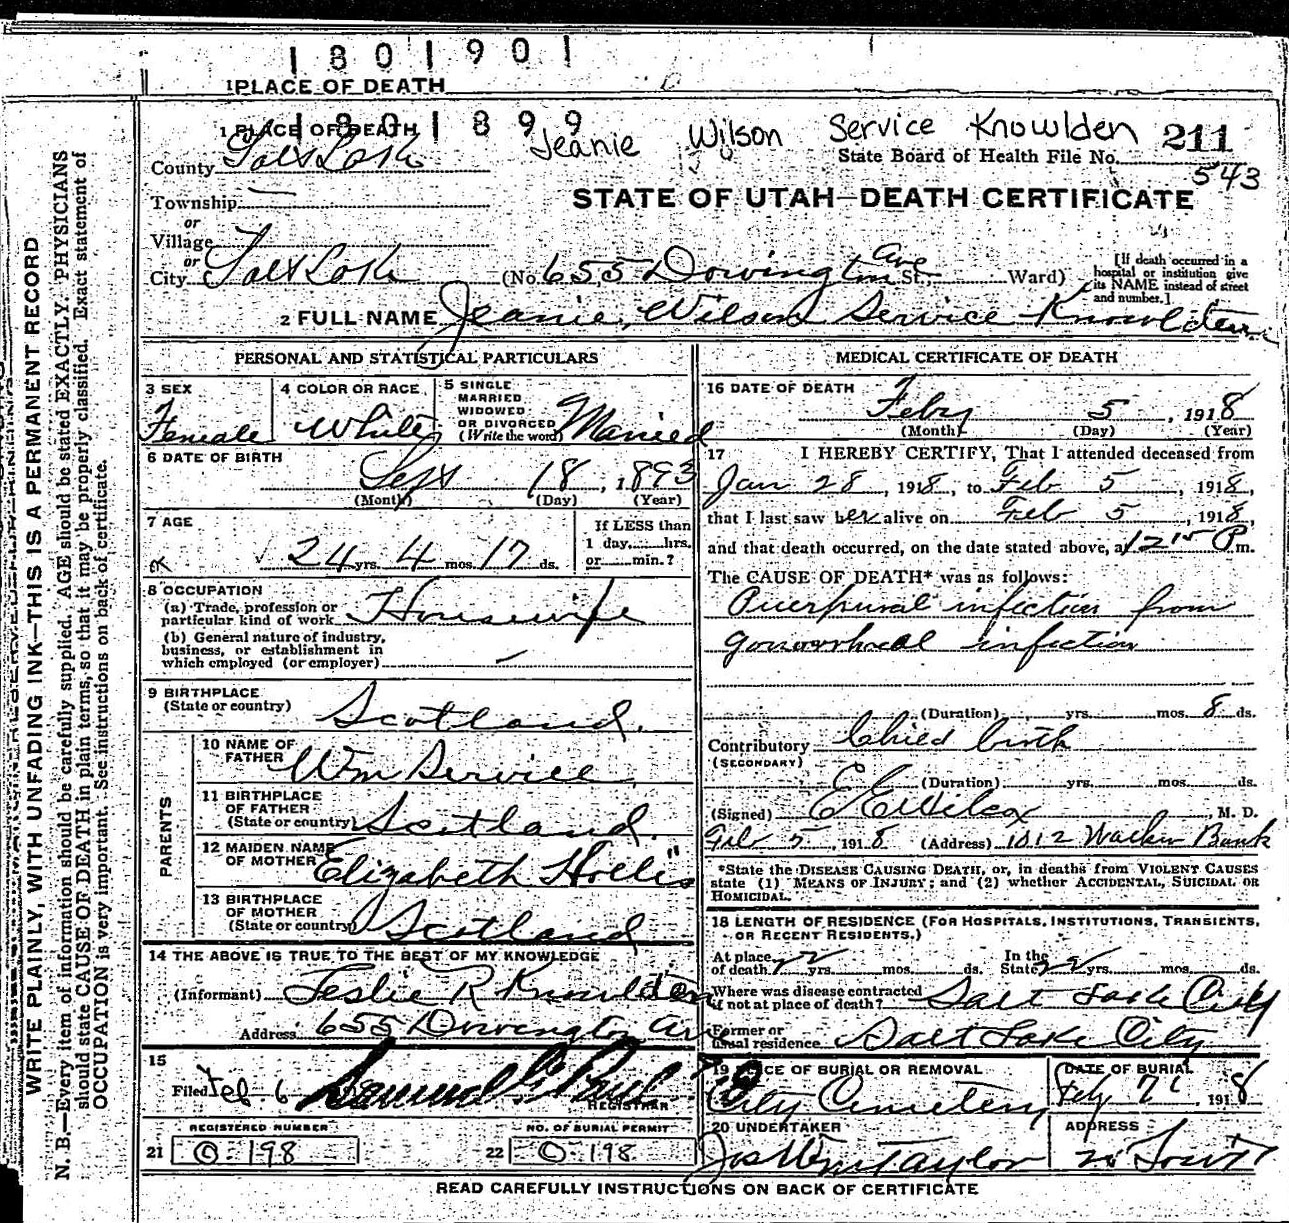 1801901
1 PLACE OF DEATH
1801899
1 PLACE OF DEATH
Jeanie Wilson Service Knowlden 211
County Salt Lake
State Board of Health File No. 543
Township —
STATE OF UTAH—DEATH CERTIFICATE
or
Village
or
City Salt Lake (No. 655 Dowington Ave St., Ward)
[If death occurred in a
hospital or institution give
its NAME instead of street
and number.]
2 FULL NAME Jeanie Wilson Service Knowlden
PERSONAL AND STATISTICAL PARTICULARS
3 SEX
Female
4 COLOR OR RACE
White
5 SINGLE
MARRIED
WIDOWED
OR DIVORCED
(Write the word) Married
6 DATE OF BIRTH
Sept 18, 1893
(Month) (Day) (Year)
7 AGE
24 yrs. 4 mos. 17 ds.
If LESS than
1 day, hrs.
or min.?
8 OCCUPATION
(a) Trade, profession or
particular kind of work Housewife
(b) General nature of industry,
business, or establishment in
which employed (or employer) —
9 BIRTHPLACE
(State or country) Scotland.
PARENTS
10 NAME OF
FATHER Wm Service
11 BIRTHPLACE
OF FATHER
(State or country) Scotland.
12 MAIDEN NAME
OF MOTHER Elizabeth Hollis
13 BIRTHPLACE
OF MOTHER
(State or country) Scotland
14 THE ABOVE IS TRUE TO THE BEST OF MY KNOWLEDGE
(Informant) Leslie R Knowlden
Address 655 Dowington Av
15
Filed Feb 6 Samuel G Paul
REGISTRAR
REGISTERED NUMBER
21 O-198
NO. OF BURIAL PERMIT
22 O-198
MEDICAL CERTIFICATE OF DEATH
16 DATE OF DEATH
Feby 5, 1918
(Month) (Day) (Year)
17 I HEREBY CERTIFY, That I attended deceased from
Jan 28, 1918, to Feb 5, 1918,
that I last saw her alive on Feb 5, 1918,
and that death occurred, on the date stated above, at 12 15 P m.
The CAUSE OF DEATH* was as follows:
Puerpural infection from
gonorrhoeal infection
(Duration) yrs. mos. 8 ds.
Contributory Child birth
(SECONDARY)
(Duration) yrs. mos. ds.
(Signed) E E Wilcox, M. D.
Feb 5, 1918 (Address) 1012 Walker Bank
*State the DISEASE CAUSING DEATH, or, in deaths from VIOLENT CAUSES
state (1) MEANS OF INJURY; and (2) whether ACCIDENTAL, SUICIDAL OR
HOMICIDAL.
18 LENGTH OF RESIDENCE (FOR HOSPITALS, INSTITUTIONS, TRANSIENTS,
OR RECENT RESIDENTS.)
At place
of death yrs. mos. ds.
In the
State yrs. mos. ds.
Where was disease contracted
if not at place of death? Salt Lake City
Former or
usual residence Salt Lake City
19 PLACE OF BURIAL OR REMOVAL
City Cemetery
DATE OF BURIAL
Feby 7th 1918
20 UNDERTAKER
Jos Wm Taylor
ADDRESS
READ CAREFULLY INSTRUCTIONS ON BACK OF CERTIFICATE
WRITE PLAINLY, WITH UNFADING INK—THIS IS A PERMANENT RECORD
N. B.—Every item of information should be carefully supplied. AGE should be stated EXACTLY. PHYSICIANS
should state CAUSE OF DEATH in plain terms, so that it may be properly classified. Exact statement of
OCCUPATION is very important. See instructions on back of certificate.